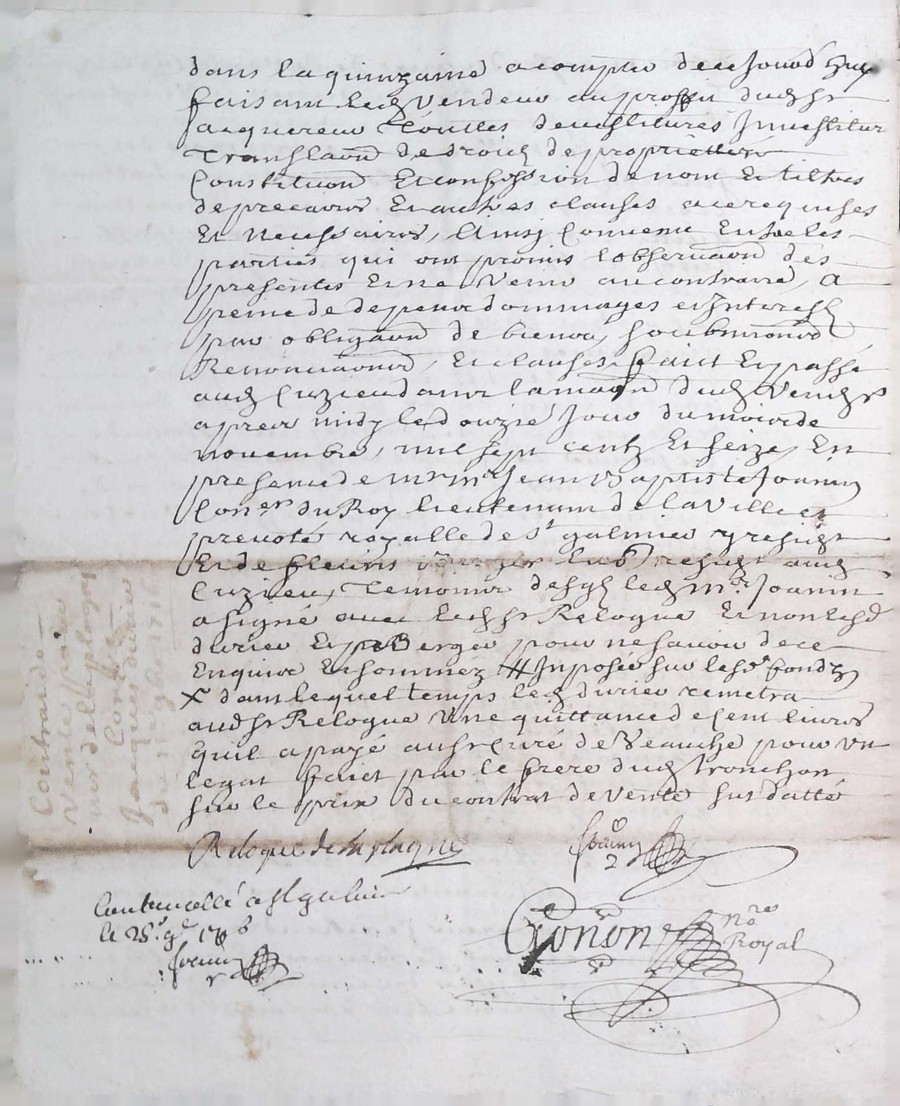 dans la quinzaine a compter de ce jourd'huy
faisant led vendeur au proffit dud sr
acquereur touttes devestitures Investitur
Translaon de droicts de proprietté
Constituon Et confession de nom Et tiltres
de precaires Et autres clauses a ce requises
Et Necessaires, Ainsy Convenu Entre les
parties qui ont promis l'observaon des
presentes Et ne Venir au contraire, A
peine de tous dommages et Interests
par obligaon de biens, soubmissions
Renonciaons, Et clauses, faict Et passé
aud Cuzieu dans la maon dud Vendr
apres midy le douzie Jour du mois de
novembre, mil sept centz Et seize, En
presence de mr me Jean Baptiste Joanin
Coner du Roy lieutenant de la Ville et
prevoté royalle de st galmier y residt
Et de residt aud
Cuzieu, Temoins led mre Joanin
a signé avec led sr Relogue Et non led
durieu Et pe Berger pour ne scavoir de ce
Enquis Et sommez # Imposée sur lesd fondz
X dans lequel temps led durieu remetra
aud sr Relogue Une quittance de cent livres
qu'il a payé au sr Curé de Veauche pour un
legat faict par le frere dud tronchon
sur le prix du contrat de vente sus datté
Relogue de la plagne
Joanin
2
Contrerollé a st galmier
le 28e 9e 1716
Joanin
Gonon nore
Royal
Contrat de
Vente pour
Contre
Jacques durieu
du 12 9bre 1716